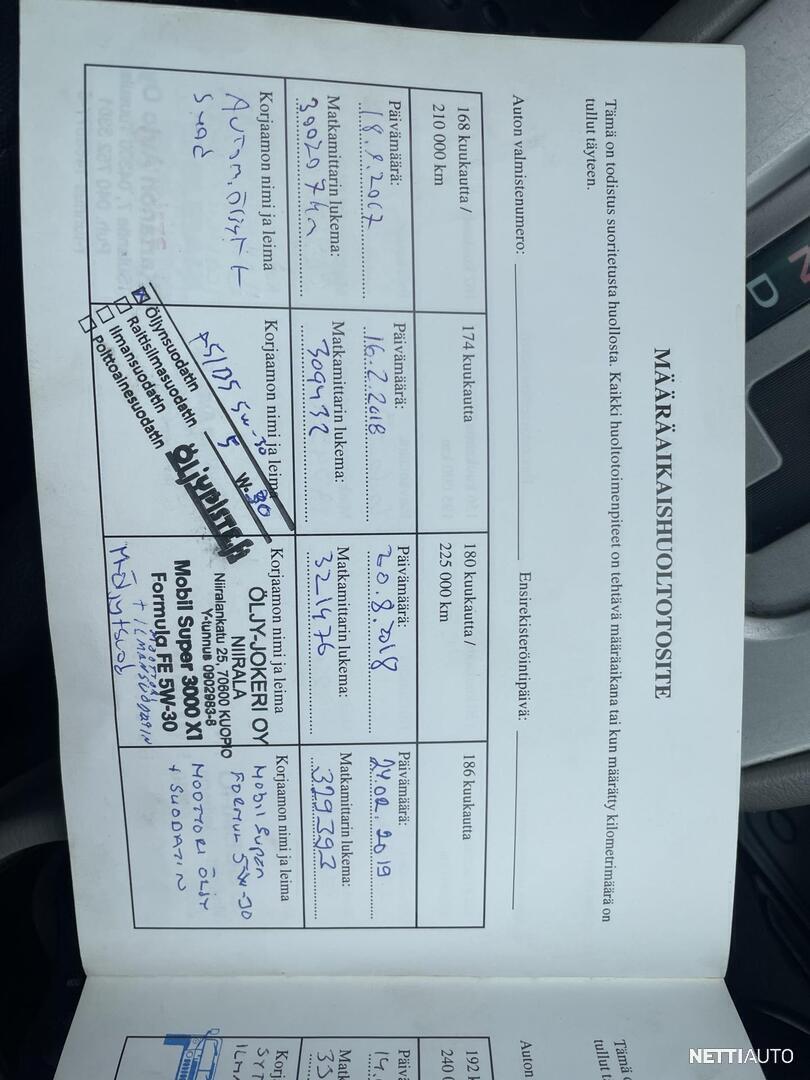 MÄÄRÄAIKAISHUOLTOTOSITE
Tämä on todistus suoritetusta huollosta. Kaikki huoltotoimenpiteet on tehtävä määräaikana tai kun määrätty kilometrimäärä on
tullut täyteen.
Auton valmistenumero:
Ensirekisteröintipäivä:
168 kuukautta /
210 000 km
Päivämäärä:
Matkamittarin lukema:
Korjaamon nimi ja leima
174 kuukautta
Päivämäärä:
16.2.2018
Matkamittarin lukema:
309432
Korjaamon nimi ja leima
W-30
Öljynsuodatin
Raitisilmasuodatin
Ilmansuodatin
Polttoainesuodatin
180 kuukautta /
225 000 km
Päivämäärä:
20.8.2018
Matkamittarin lukema:
321476
Korjaamon nimi ja leima
ÖLJY-JOKERI OY
NIIRALA
Niiralankatu 25, 70600 KUOPIO
Y-tunnus 0902983-8
Mobil Super 3000 X1
Formula FE 5W-30
MOOTTORI
+ ILMANSUODATIN
186 kuukautta
Päivämäärä:
24.02.2019
Matkamittarin lukema:
329393
Korjaamon nimi ja leima
MOBIL SUPER
5W-30
MOOTTORI ÖLJY
+ SUODATIN
Tämä
tullut
Auton
192
240
Päivä
14.
Matk
Korj
N
D
NETTIAUTO